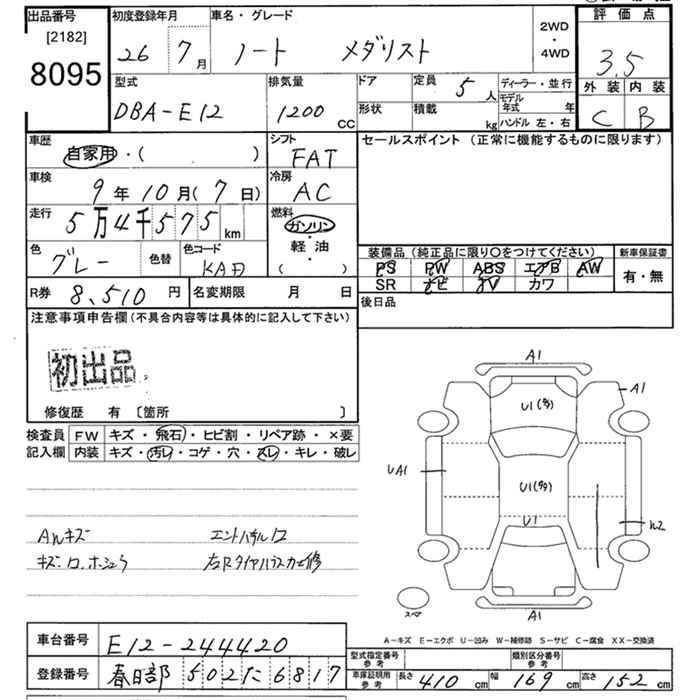 出品番号 初度登録年月 車名・グレード 2WD・4WD 評価点
[2182]
8095 26 7月 ノート メダリスト 3.5
型式 排気量 ドア 定員 5人 ディーラー・並行 外装 内装
DBA-E12 1200cc 形状 積載 kg モデル年式 年 ハンドル 左・右 C B
車歴 自家用・( ) シフト FAT セールスポイント (正常に機能するものに限ります)
車検 9年10月(7日) 冷房 AC
走行 5万4千575km 燃料 ガソリン・軽油・( )
色 グレー 色替 色コード KAD 装備品 (純正品に限り○をつけてください) 新車保証書
PS PW ABS エアB AW 有・無
SR ナビ TV カワ
R券 8,510円 名変期限 月 日 後日品
注意事項申告欄(不具合内容等は具体的に記入して下さい)
初出品
修復歴 有 [箇所 ]
検査員 FW キズ・飛石・ヒビ割・リペア跡・×要
記入欄 内装 キズ・汚レ・コゲ・穴・スレ・キレ・破レ
A1
A1
U1(多)
UA1
U1(多)
U1
W2
A1
スペア
AWキズ
A-キズ E-エクボ U-凹み W-補修跡 S-サビ C-腐食 XX-交換済
車台番号 E12-244420
登録番号 春日部 502た6817
型式指定番号 参考 類別区分番号 参考
車庫証明用 参考 長さ 410cm 幅 169cm 高さ 152cm